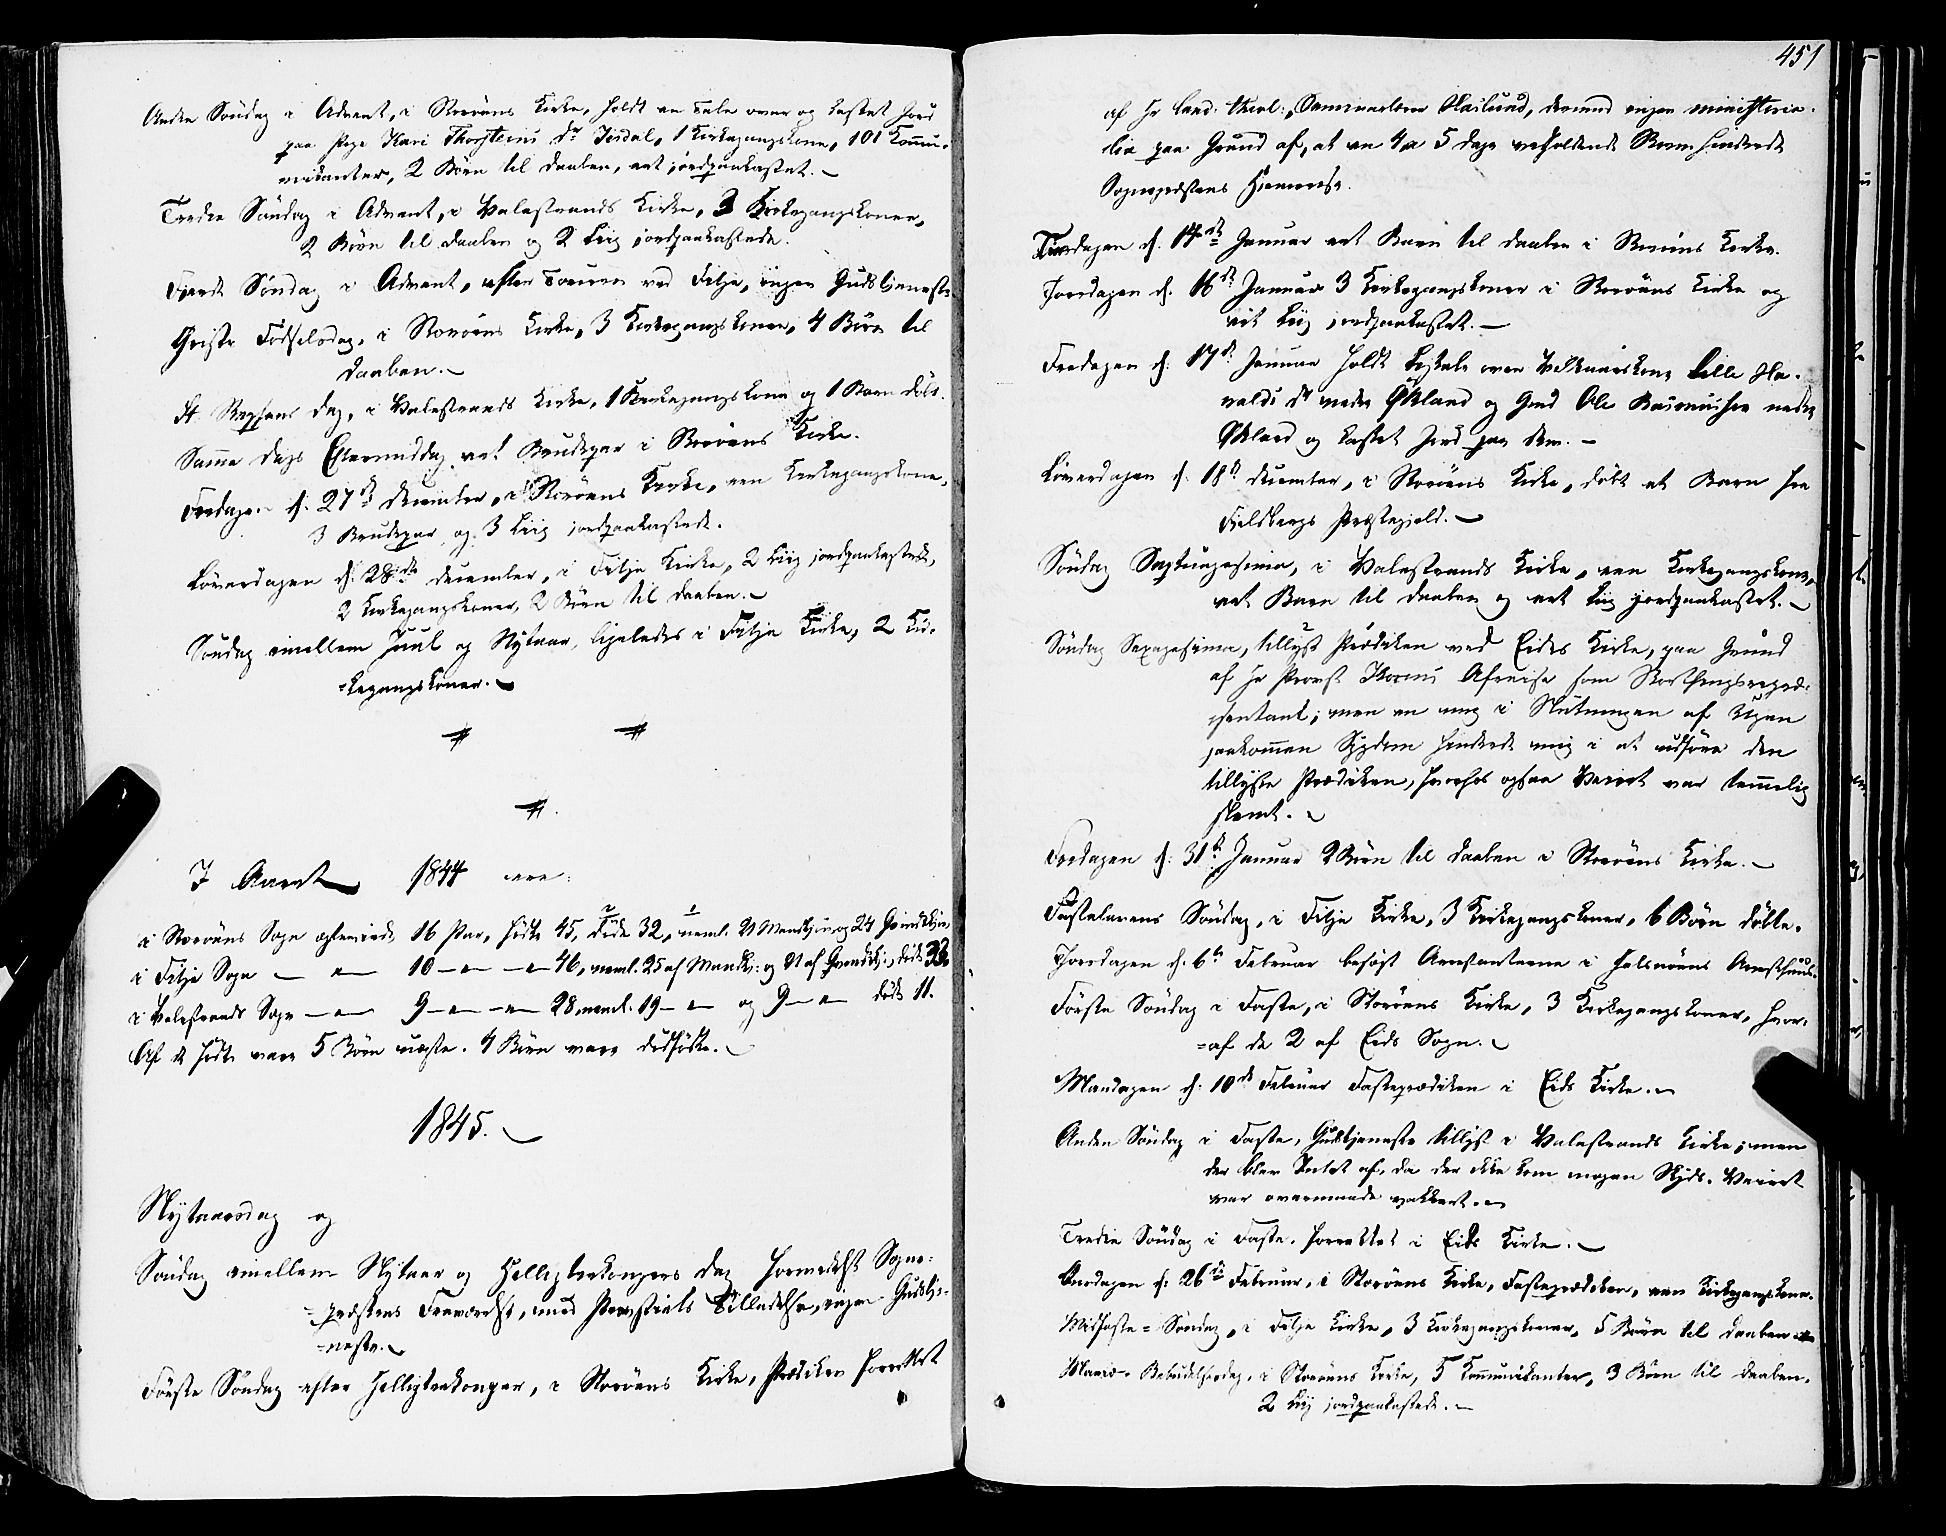 Anden Söndag i Advent, i Storöens Kirke, holdt en Tale over og kastet Jord
paa Pige Kari Thorsteins Dr Isdal, 1 Kirkegangskone, 101 Kommu-
nikanter, 2 Börn til Daaben, eet jordpaakastet.
Tredie Söndag i Advent, i Valestrands Kirke, 3 Kirkegangskoner,
2 Börn til Daaben og 2 Liig jordpaakastede.
Fjerde Söndag i Advent, efter Touren ved Fitje, ingen Gudstjeneste.
Christi Födselsdag, i Storöens Kirke, 3 Kirkegangskoner, 4 Börn til
Daaben.
St. Stephans Dag, i Valestrands Kirke, 1 Kirkegangskone og 1 Barn döbt.
Samme Dags Eftermiddag eet Brudepar i Storöens Kirke.
Fredagen d. 27de December, i Storöens Kirke, een Kirkegangskone,
3 Brudepar og 3 Liig jordpaakastede.
Löverdagen d. 28de December, i Fitje Kirke, 2 Liig jordpaakastede,
2 Kirkegangskoner, 2 Börn til Daaben.
Söndag imellem Juul og Nytaar, ligeledes i Fitje Kirke, 2 Kir-
=kegangskoner.
I Aaret 1844 ere:
i Storöens Sogn ægteviede 16 Par, födte 45, döde 32, neml. 21 Mandkjön og 24 Qvindekjön,
i Fitje Sogn — 10 — 46, neml. 25 af Mandkj: og 21 af Qvindekj:, döde
i Valestrands Sogn — 9 — 28, neml. 19 — og 9 — döde 11.
Af de födte vare 5 Börn uægte. 4 Börn vare dödfödte.
1845.
Nytaarsdag og
Söndag imellem Nytaar og Helligtrekongers Dag formedelst Sogne-
=præstens Fraværelse, med Provstiets Tilladelse, ingen Gudstje-
=neste.
Förste Söndag efter Helligtrekonger, i Storöens Kirke, Prædiken forrettet
451
af Hr Cand. theol: Seminarlærer Haslund, dermed ingen ministeria-
lia paa Grund af, at en 4 a 5 Dage vedholdende Storm hindrede
Sognepræstens Hjemreise.
Tirsdagen d. 14de Januar eet Barn til Daaben i Storöens Kirke.
Torsdagen d. 16de Januar 3 Kirkegangskoner i Storöens Kirke og
eet Liig jordpaakastet.
Fredagen d. 17de Januar holdt Ligtale over Helle Ha-
valds Dr nedre Økland og Gmd Ole Rasmussen nedre
Økland og kastet Jord paa dem.
Löverdagen d. 18de December, i Storöens Kirke, döbt et Barn fra
Fjeldbergs Præstegjeld.
Söndag Septuagesima, i Valestrands Kirke, een Kirkegangskone,
eet Barn til Daaben og eet Liig jordpaakastet.
Söndag Sexagesima, tillyst Prædiken ved Eids Kirke, paa Grund
af Hr Provst Afreise som Storthingsrepræ-
sentant; men en mig i Slutningen af Ugen
paakommen Sygdom hindrede mig i at udföre den
tillyste Prædiken, hvorhos ogsaa Veiret var temmelig
slemt.
Fredagen d. 31te Januar 2 Börn til Daaben i Storöens Kirke.
Fastelavens Söndag, i Fitje Kirke, 3 Kirkegangskoner, 6 Börn döbte.
Torsdagen d. 6te Februar besögt Arrestanterne i Halsnöens Arresthuus.
Förste Söndag i Faste, i Storöens Kirke, 3 Kirkegangskoner, hvor-
=af de 2 af Eids Sogn.
Mandagen d. 10de Februar Fasteprædiken i Eids Kirke.
Anden Söndag i Faste, Gudstjeneste tillyst i Valestrands Kirke; men
der blev Intet af, da der ikke kom nogen Skyds. Veiret
var overmaade vakkert.
Tredie Söndag i Faste, forrettet i Eids Kirke.
Onsdagen d. 26de Februar, i Storöens Kirke, Fasteprædiken, een Kirkegangskone.
Midfaste=Söndag, i Fitje Kirke, 3 Kirkegangskoner, 5 Börn til Daaben
Mariæ Bebudelsesdag, i Storöens Kirke, 5 Kommunikanter, 3 Börn til Daaben,
2 Liig jordpaakastede.